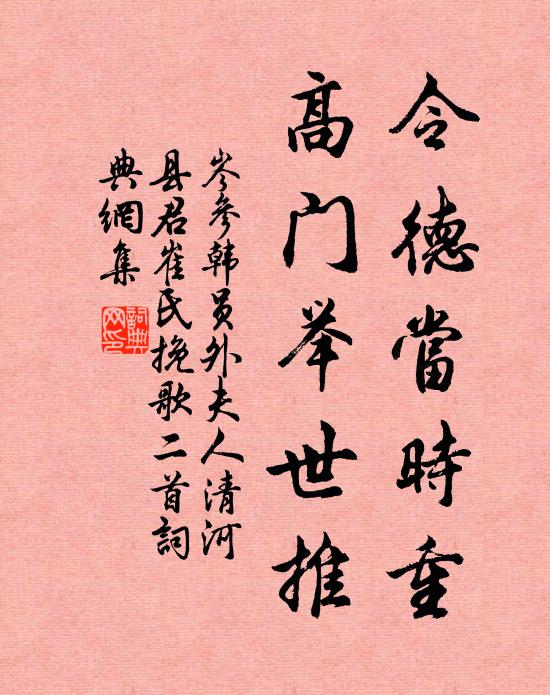 令德當時重
高门举世推
岑參韩员外夫人清河
县君崔氏挽歌二首詞
典網集
詞典网印